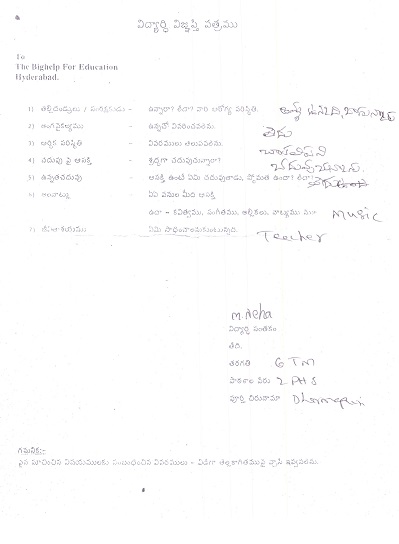 విద్యార్థి విజ్ఞప్తి పత్రము
To
The Bighelp For Education
Hyderabad.
1) తల్లిదండ్రులు / సంరక్షకుడు - ఉన్నారా? లేదా? వారి ఆరోగ్య పరిస్థితి.
2) అంగవైకల్యము - ఉన్నచో వివరించవలెను లేదు
3) ఆర్థిక పరిస్థితి - వివరములు తెలుపవలెను
4) చదువు పై ఆసక్తి - శ్రద్ధగా చదువుచున్నారా?
5) ఉన్నతచదువు - ఆసక్తి ఉంటే ఏమి చదువుతాడు, స్తోమత ఉందా? లేదా?
6) అలవాట్లు - ఏఏ పనుల మీద ఆసక్తి
ఉదా - కవిత్వము, సంగీతము, అల్లికలు, నాట్యము Music
7) జీవితాశయము - ఏమి సాధించాలనుకుంటున్నది. Teacher
M. Neha
విద్యార్థి సంతకం
తేది.
తరగతి 6 TM
పాఠశాల పేరు 2 PHS
పూర్తి చిరునామా
గమనిక:-
పైన సూచించిన విషయములకు సంబంధించిన వివరములు - విడిగా తెల్లకాగితముపై వ్రాసి ఇవ్వవలెను.